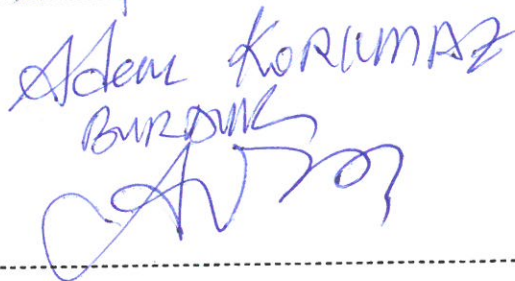 Adem KORKMAZ
BURDUR